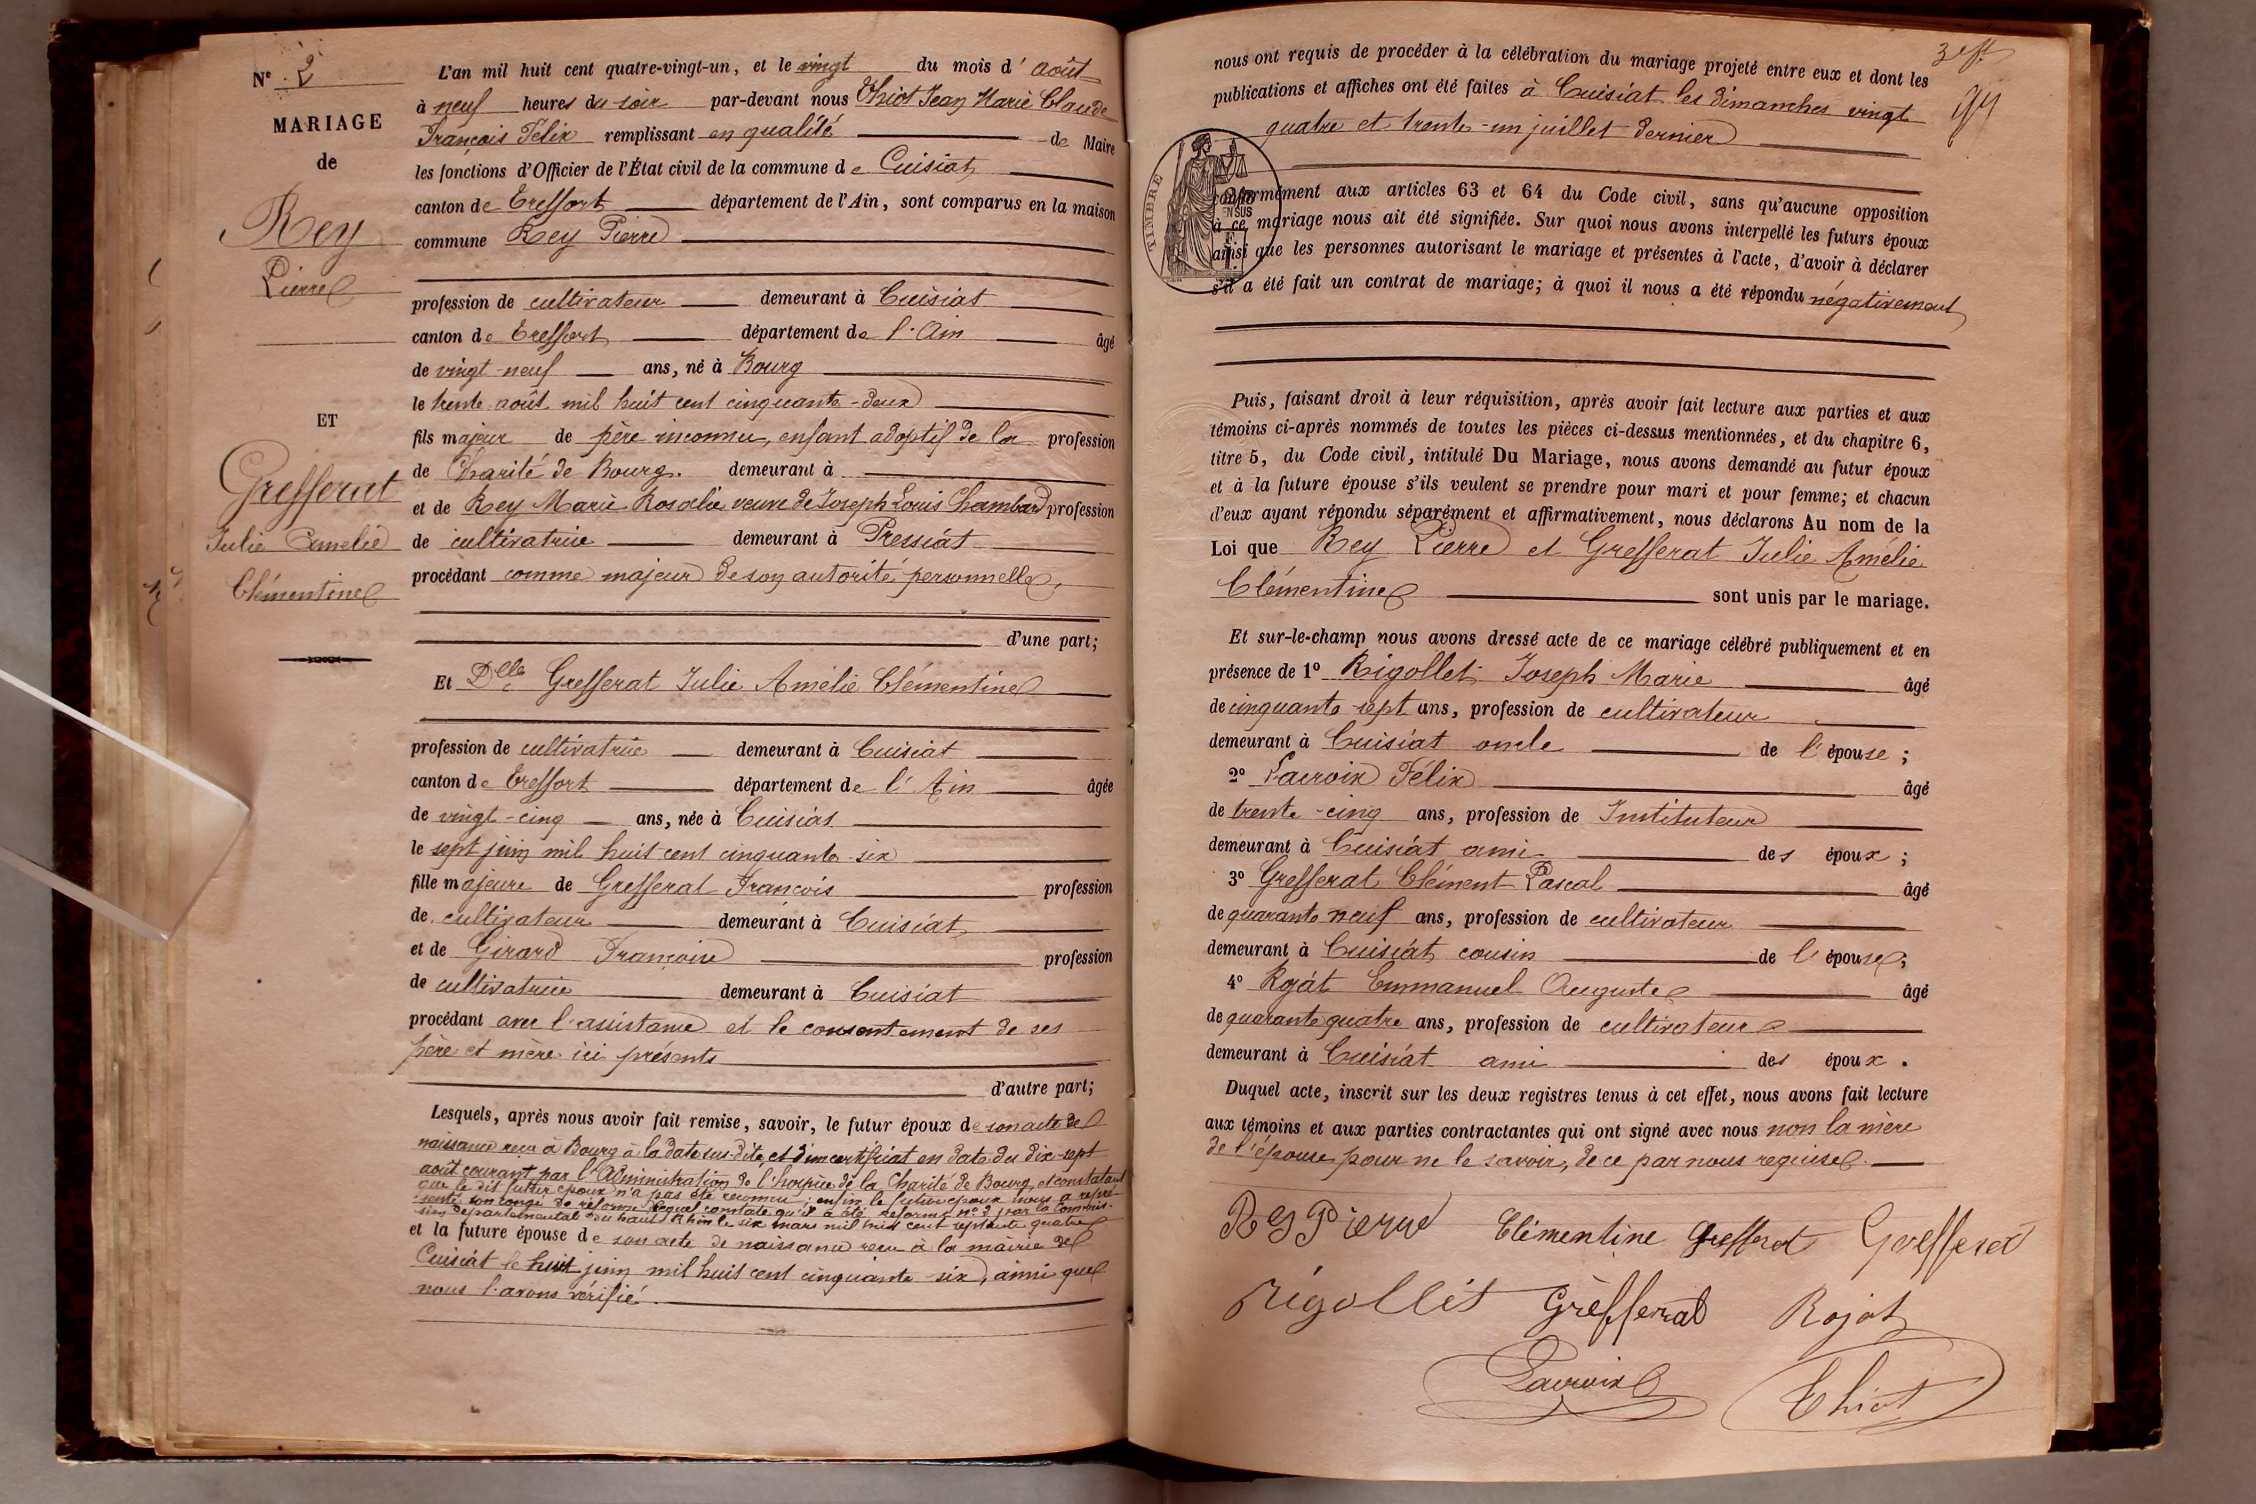 Nº 2
MARIAGE
de
Rey
Pierre
ET
Grefferat
Julie Amélie
Clémentine
L'an mil huit cent quatre-vingt-un, et le vingt du mois d'août
à neuf heures du soir par-devant nous Thiot Jean Marie Claude
François Félix remplissant en qualité de Maire
les fonctions d'Officier de l'État civil de la commune de Cuisiat
canton de Treffort département de l'Ain, sont comparus en la maison
commune Rey Pierre
profession de cultivateur demeurant à Cuisiat
canton de Treffort département de l'Ain âgé
de vingt-neuf ans, né à Bourg
le trente août mil huit cent cinquante-deux
fils majeur de père inconnu, enfant adoptif de la profession
de Charité de Bourg. demeurant à
et de Rey Marie Rosalie veuve de Joseph Louis Chambard profession
de cultivatrice demeurant à Pressiat
procédant comme majeur de son autorité personnelle,
d'une part;
Et Delle Grefferat Julie Amélie Clémentine
profession de cultivatrice demeurant à Cuisiat
canton de Treffort département de l'Ain âgée
de vingt-cinq ans, née à Cuisiat
le sept juin mil huit cent cinquante-six
fille majeure de Grefferat François profession
de cultivateur demeurant à Cuisiat
et de Girard Françoise profession
de cultivatrice demeurant à Cuisiat
procédant avec l'assistance et le consentement de ses
père et mère ici présents
d'autre part;
Lesquels, après nous avoir fait remise, savoir, le futur époux de son acte de
naissance reçu à Bourg à la date sus-dite, et d'un certificat en date du dix-sept
août courant par l'Administration de l'hospice de la Charité de Bourg, et constatant
que le dit futur époux n'a pas été reconnu; enfin le futur époux nous a repré-
senté son congé de réforme lequel constate qu'il a été réformé nº 2 par la Commis-
sion départementale du haut Rhin le six mars mil huit cent septante quatre
et la future épouse de son acte de naissance reçu à la mairie de
Cuisiat le huit juin mil huit cent cinquante-six, ainsi que
nous l'avons vérifié.
3e ft
nous ont requis de procéder à la célébration du mariage projeté entre eux et dont les
publications et affiches ont été faites à Cuisiat les dimanches vingt
quatre et trente-un juillet dernier
TIMBRE
EN SUS
conformément aux articles 63 et 64 du Code civil, sans qu'aucune opposition
à ce mariage nous ait été signifiée. Sur quoi nous avons interpellé les futurs époux
ainsi que les personnes autorisant le mariage et présentes à l'acte, d'avoir à déclarer
s'il a été fait un contrat de mariage; à quoi il nous a été répondu négativement
Puis, faisant droit à leur réquisition, après avoir fait lecture aux parties et aux
témoins ci-après nommés de toutes les pièces ci-dessus mentionnées, et du chapitre 6,
titre 5, du Code civil, intitulé Du Mariage, nous avons demandé au futur époux
et à la future épouse s'ils veulent se prendre pour mari et pour femme; et chacun
d'eux ayant répondu séparément et affirmativement, nous déclarons Au nom de la
Loi que Rey Pierre et Grefferat Julie Amélie
Clémentine sont unis par le mariage.
Et sur-le-champ nous avons dressé acte de ce mariage célébré publiquement et en
présence de 1º Rigollet Joseph Marie âgé
de cinquante sept ans, profession de cultivateur
demeurant à Cuisiat oncle de l'épouse;
2º Lacroix Félix âgé
de trente-cinq ans, profession de Instituteur
demeurant à Cuisiat ami des époux;
3º Grefferat Clément Pascal âgé
de quarante neuf ans, profession de cultivateur
demeurant à Cuisiat cousin de l'épouse;
4º Rojat Emmanuel Auguste âgé
de quarante quatre ans, profession de cultivateur
demeurant à Cuisiat ami des époux.
Duquel acte, inscrit sur les deux registres tenus à cet effet, nous avons fait lecture
aux témoins et aux parties contractantes qui ont signé avec nous non la mère
de l'épouse pour ne le savoir, de ce par nous requise.
Rey Pierre Clémentine Grefferat Grefferat
Rigollet Grefferat Rojat
Lacroix Thiot